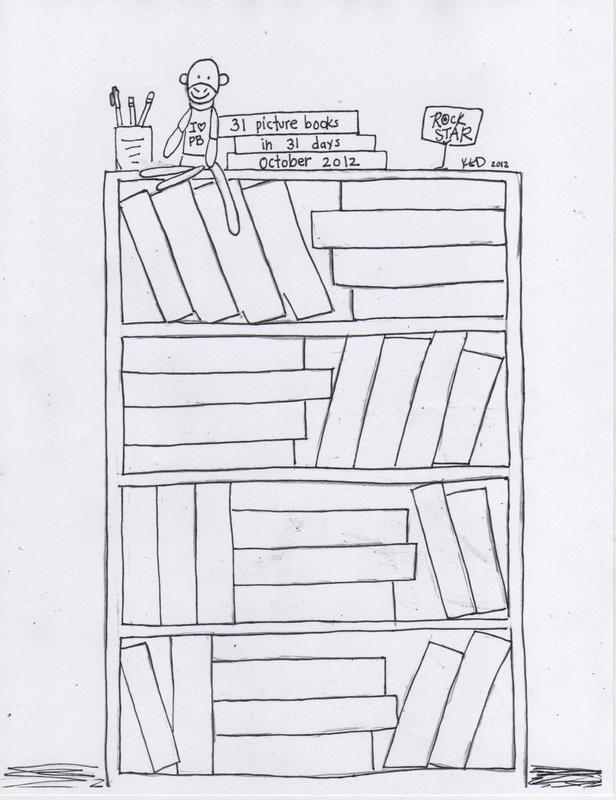 I ♡
PB
31 picture books
in 31 days
October 2012
ROCK
STAR
KED 2012